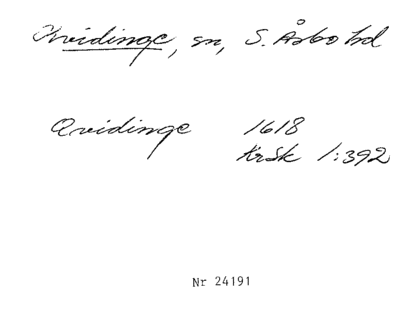 Kvidinge, sn, S. Åsbo hd
Qvidinge 1618
KrSk 1:392
Nr 24191